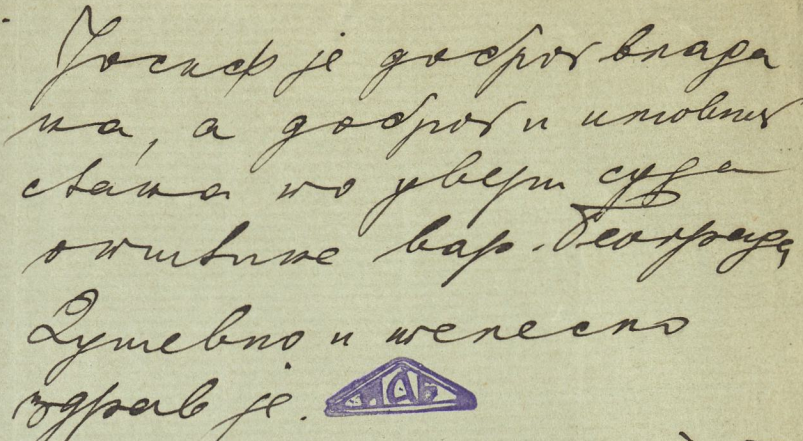 Јосиф је доброг влада
ња, а доброг и имовног
стања по уверу суда
општине вар. Београда,
Душевно и телесно
здрав је.